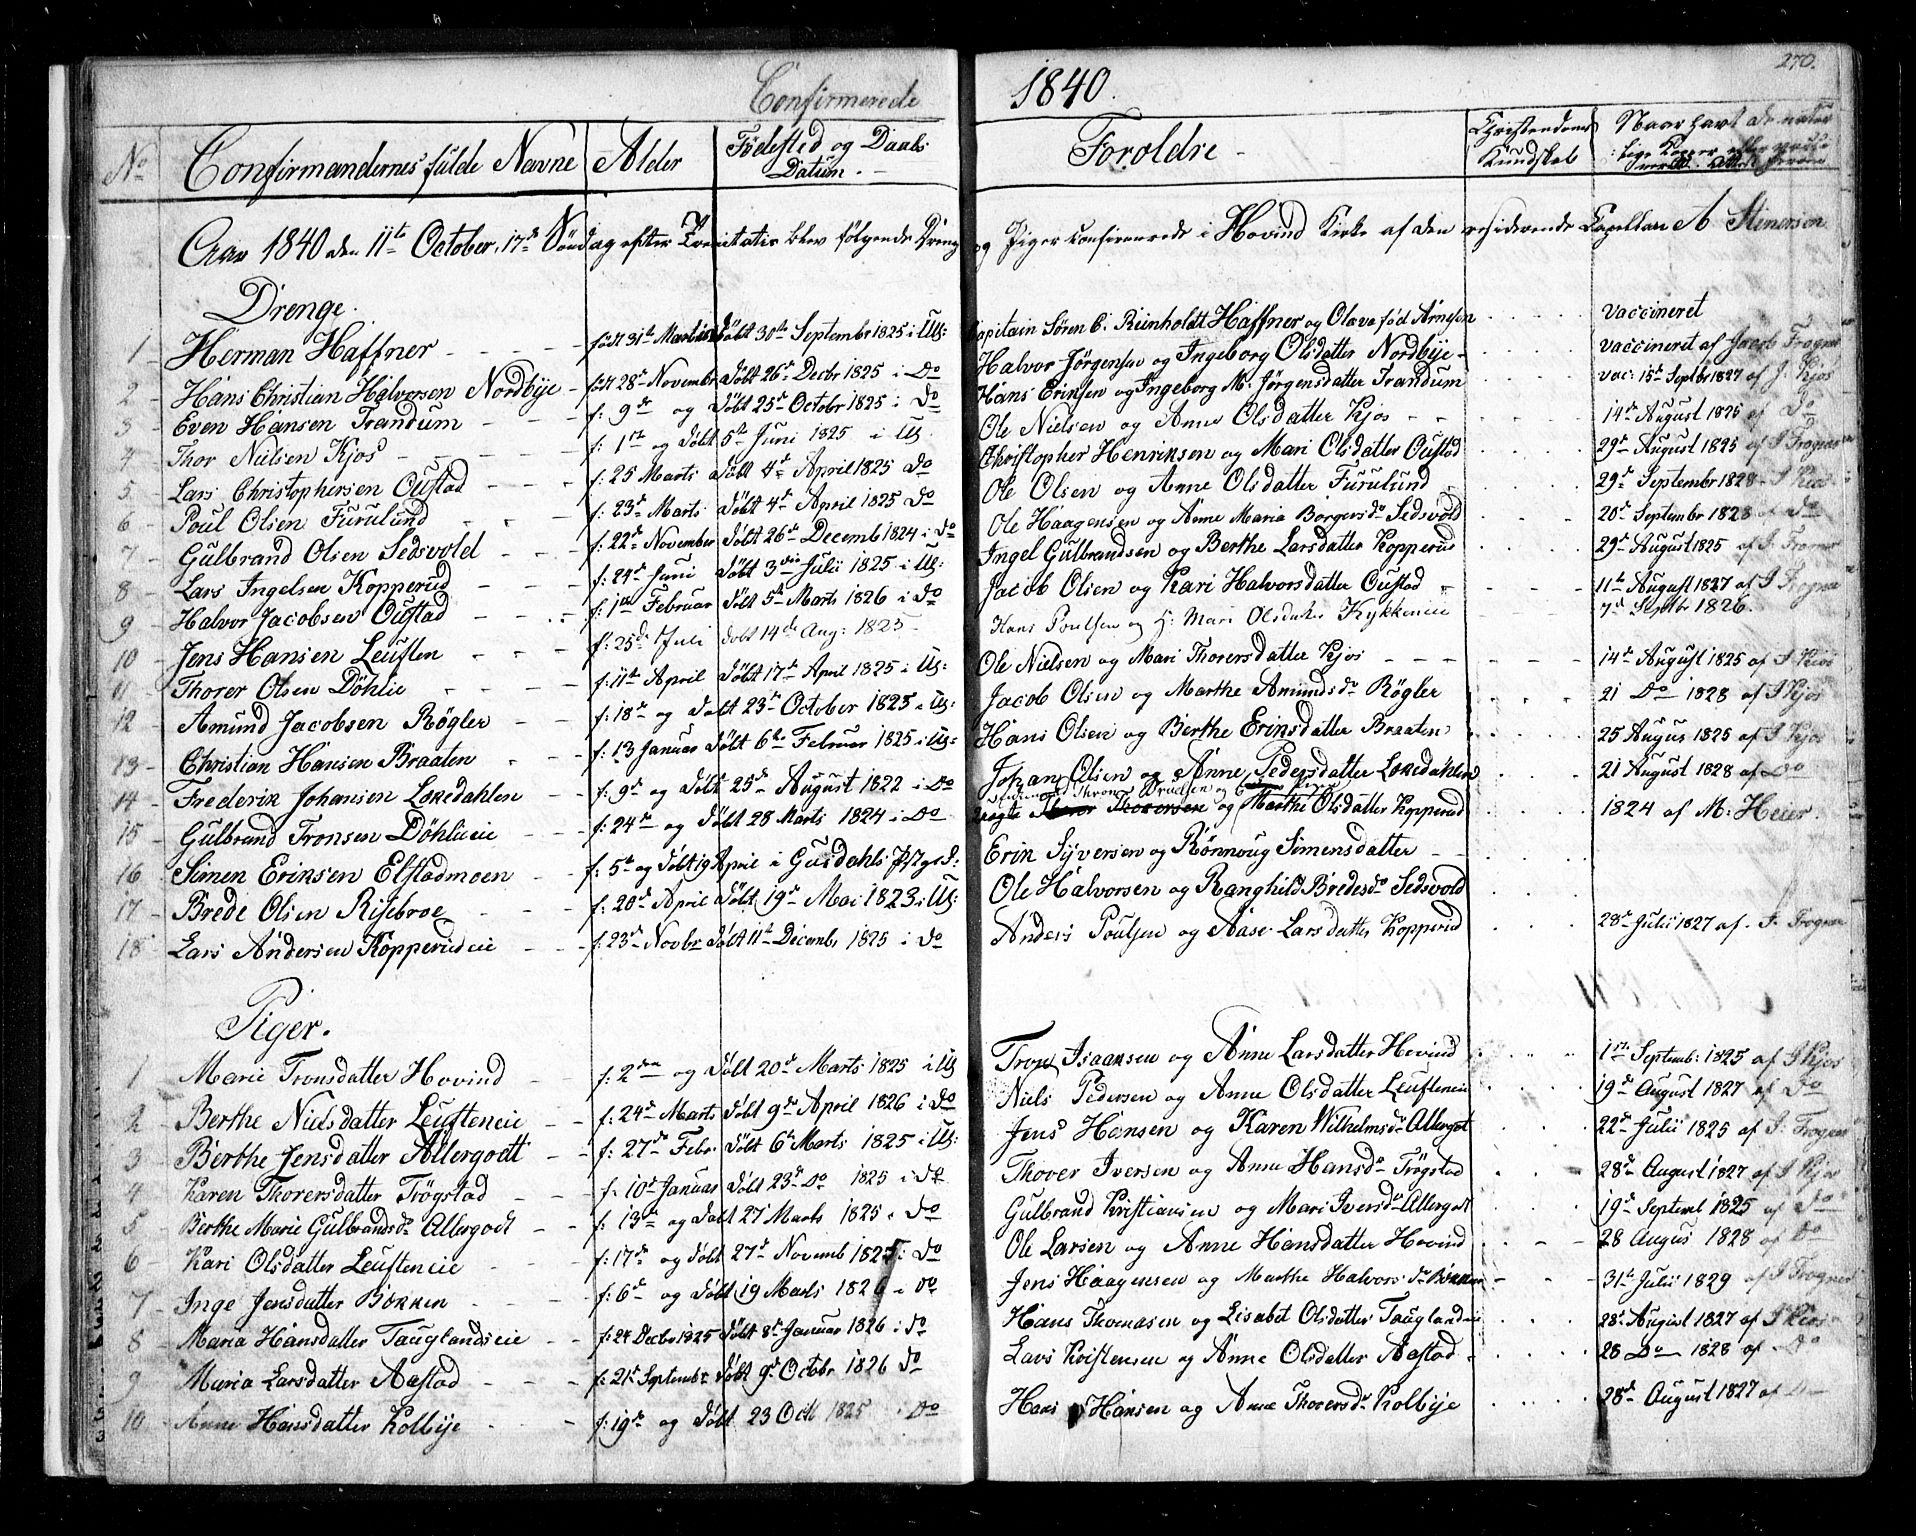 Confirmerede 1840. 270.
No Confirmandernes fulde Navne Alder Fødested og Daabs Datum. Forældre Christendoms Kundskab Naar havt de natur lige Kopper eller
Aar 1840 den 11te October, 17de Søndag efter Trinitatis blev følgende Dreng og Piger confirmerede i Hovind Kirke af den residerende Capellan A Stenersen
Drenge.
1 Herman Haffner født 31te Marts døbt 30te Septembr 1825 i Ull: Capitain Søren C. Reinholdt Haffner og Olava fød Arnesen vaccineret
2 Hans Christian Halvorsen Nordbye født 28de Novembr døbt 26de Decbr 1825 i Do Halvor Jørgensen og Ingeborg Olsdatter Nordbye vaccineret af Jacob Trogner
3 Even Hansen Trandum f: 9de og døbt 25de Octobr 1825 i Do Hans Eriksen og Ingeborg M. Jørgensdatter Trandum vac: 15de Septbr 1827 af J. Kjos
4 Thor Nielsen Kjos f: 1ste og døbt 5te Juni 1825 i Ull Ole Nielsen og Anne Olsdatter Kjos 14de August 1825 af Do
5 Lars Christophersen Oustad f: 25 Marts døbt 4de April 1825 Do Christopher Henriksen og Mari Olsdatter Oustad 29de August 1825 af J Trogner
6 Poul Olsen Furulund f: 23de Marts døbt 4de April 1825 Do Ole Olsen og Anne Olsdatter Furulund 29de Septembr 1828 J Kios
7 Gulbrand Olsen Sedsvold f: 22de November døbt 26de Decemb 1824 i Do Ole Haagensen og Anne Maria Borgersdr Sedsvold 20de Septembr 1828 af Do
8 Lars Ingelsen Kopperud f: 24de Juni døbt 3die Julii 1825 i Ull: Ingel Gulbrandsen og Berthe Larsdatter Kopperud 29de August 1825 af J. Trogner
9 Halvor Jacobsen Oustad f: 1ste Februar døbt 5te Marts 1826 i Do Jacob Olsen og Kari Halvorsdatter Oustad 11te August 1827 af J Trogner
10 Jens Hansen Leuften f: 25de Juli døbt 14de Aug: 1825 Hans Poulsen og Mari Olsdatter Kykkeneie 7de Septbr 1826.
11 Thorer Olsen Døhlie f: 11te April døbt 17de April 1825 i Ull: Ole Nielsen og Mari Thorersdatter Kjos 14de August 1825 af J Kios
12 Amund Jacobsen Røgler f: 18de og døbt 23de October 1825 i Ull: Jacob Olsen og Marthe Amundsdr Røgler 21 Do 1828 af J Kjos
13 Christian Hansen Braaten f: 13 Januar døbt 6te Februar 1825 i Ull: Hans Olsen og Berthe Eriksdatter Braaten 25 Augus 1825 af J Kjos
14 Frederik Johansen Løkedahlen f: 9de og døbt 25de August 1822 i Do Johan Olsen og Anne Pedersdatter Løkedahlen 21 August 1828 af Do
15 Gulbrand Tronsen Døhlieie f: 24de og døbt 28 Marts 1824 i Do Thorersen og Marthe Olsdatter Kopperud 1824 af M: Heier
16 Simen Eriksen Elstadmoen f: 5te og døbt 19 April i Gusdahls Erik Syversen og Rønnoug Simensdatter
17 Brede Olsen Risebroe f: 20de April døbt 19de Mai 1823 i Ull: Ole Halvorsen og Ranghild Bredesdr Sedsvold
18 Lars Andersen Kopperudeie f: 23de Novbr døbt 11te Decembr 1825 i Do Anders Poulsen og Aase Larsdatter Kopperud 28de Julii 1827 af J. Trogner
Piger.
1 Marie Tronsdatter Hovind f: 2den og døbt 20de Marts 1825 i Ull Tron Isaaksen og Anne Larsdatter Hovind 1ste Septemb: 1825 af J Kjos
2 Berthe Nielsdatter Leufteneie f: 24de Marts døbt 9de April 1826 i Do Niels Pedersen og Anne Olsdatter Leufteneie 19de August 1827 af Do
3 Berthe Jensdatter Allergodt f: 27de Febr: døbt 6te Marts 1825 i Ull: Jens Hansen og Karen Wilhelmsdr Allergot 22de Julii 1825 af J. Trogner
4 Karen Thorersdatter Trøgstad f: 10de Januar døbt 23de Do 1825 i Do Thorer Iversen og Anne Hansdr Trøgstad 28de August 1827 af J Kjos
5 Berthe Marie Gulbrandsdr Allergodt f: 13de og døbt 27 Marts 1825 i Do Gulbrand Kristiansen og Mari Iversdr Allergodt 19de Septemb 1825 af Do
6 Kari Olsdatter Leufteneie f: 17de og døbt 27de Novemb 1825 i Do Ole Larsen og Anne Hansdatter Hovind 28 Augus 1828 af Do
7 Inge Jensdatter Bokken f: 6te og døbt 19 Marts 1826 i Do Jens Haagensen og Marthe Halvorsdr Bokken 31te Julii 1829 af J Trogner
8 Maria Hansdatter Tauglandseie f: 24 Decbr 1825 døbt 8de Januar 1826 i Do Hans Thomasen og Lisabet Olsdatter Taugland 28de August 1827 af J Kios
9 Maria Larsdatter Aastad f: 21de Septembr døbt 9de Octobr 1826 Do Lars Kristensen og Anne Olsdatter Aastad 28 Do 1828 af Do
10 Anne Hansdatter Kolbye f: 19de og døbt 23 Oct 1825 i Do Hans Hansen og Anne Thorersdr Kolbye 28de August 1827 af Do